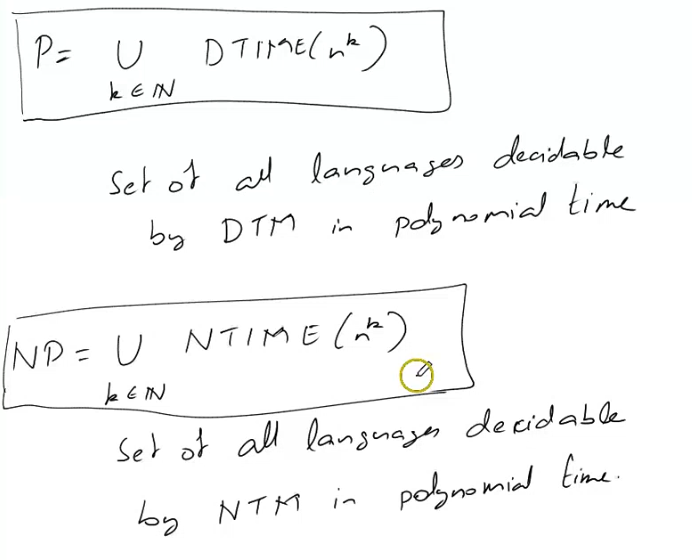 P = ∪ DTIME(n^k)
k ∈ ℕ
Set of all languages decidable
by DTM in polynomial time
NP = ∪ NTIME(n^k)
k ∈ ℕ
Set of all languages decidable
by NTM in polynomial time.